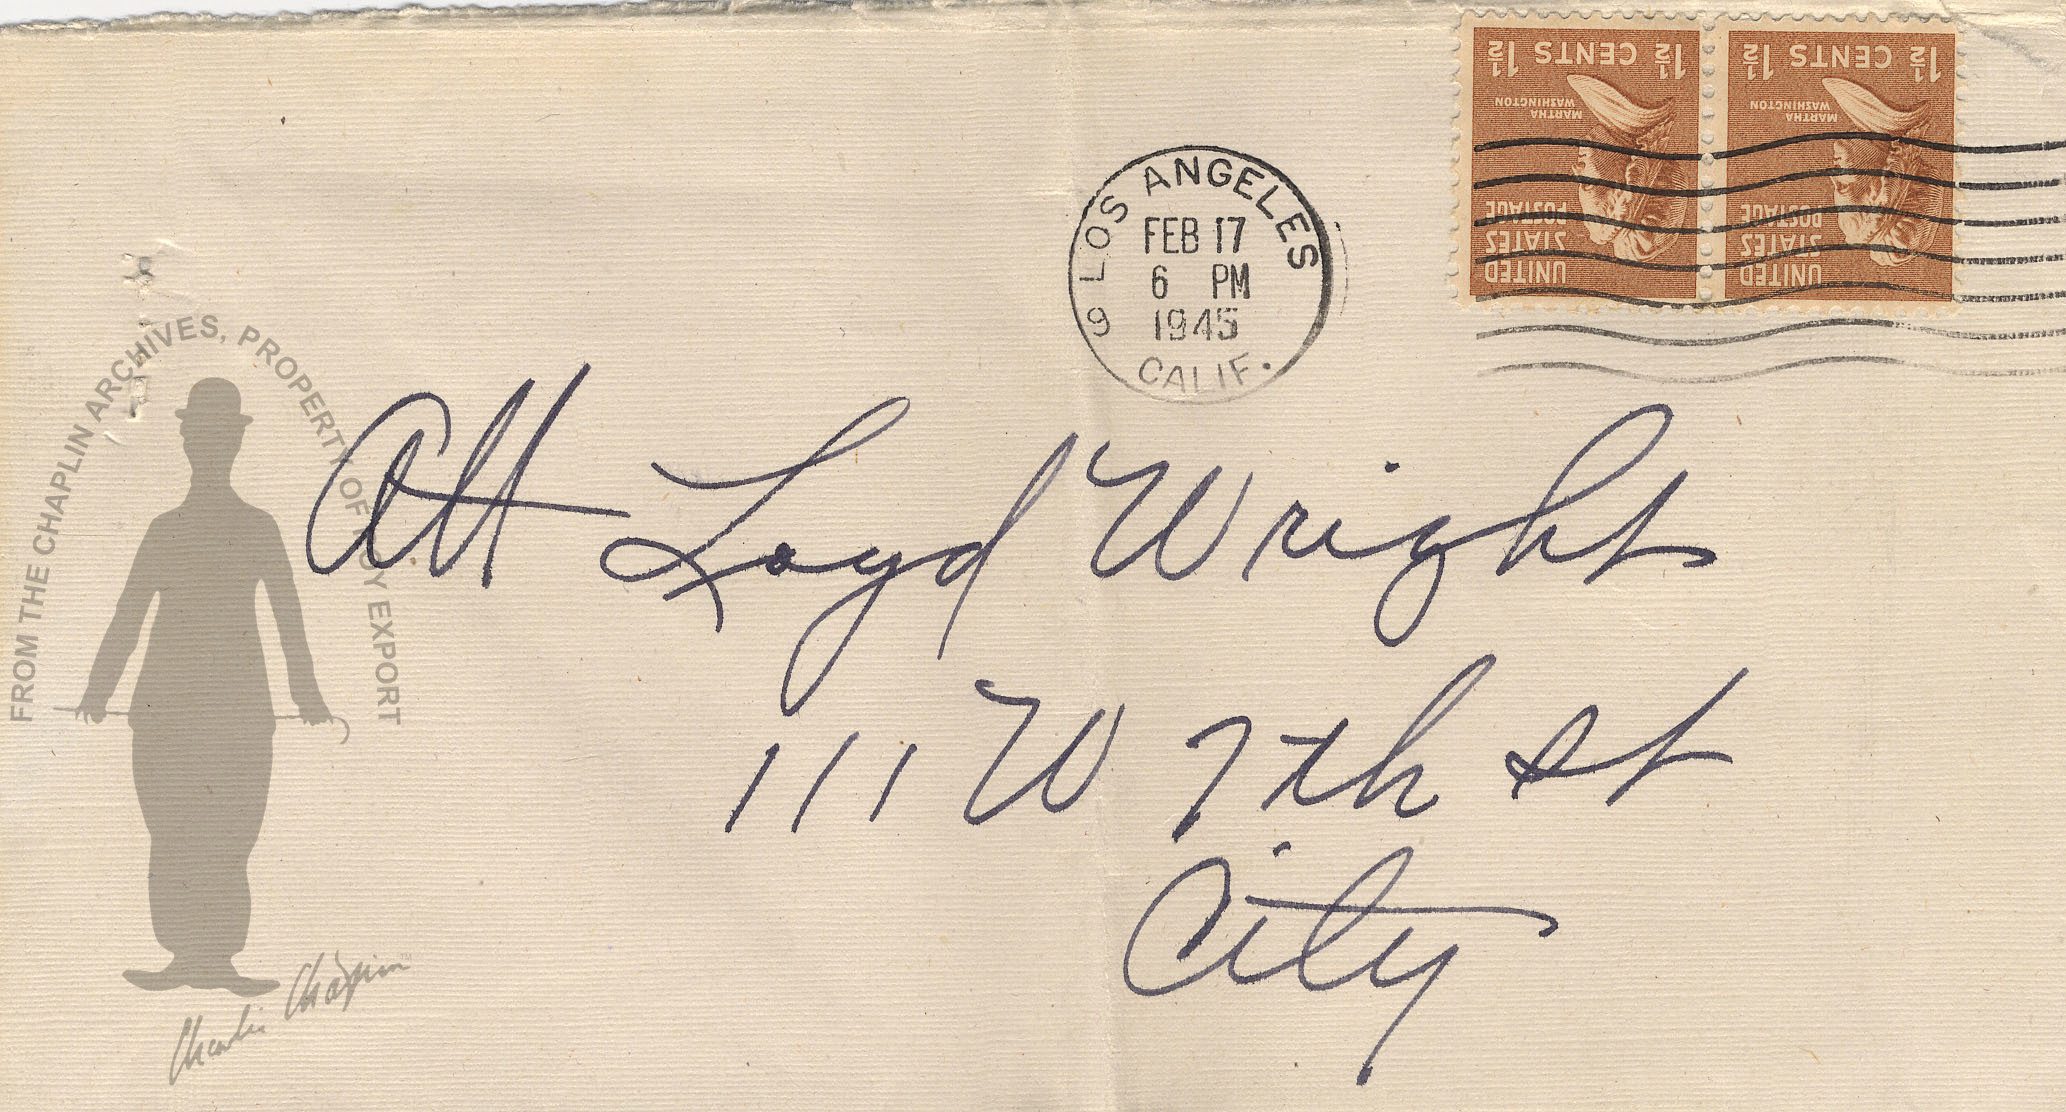 1½ CENTS 1½
MARTHA
WASHINGTON
UNITED
STATES
POSTAGE
1½ CENTS 1½
MARTHA
WASHINGTON
UNITED
STATES
POSTAGE
9 LOS ANGELES
FEB 17
6 PM
1945
CALIF.
FROM THE CHAPLIN ARCHIVES, PROPERTY OF ROY EXPORT
Att Loyd Wright
111 W 7th St
City
Charlie Chaplin